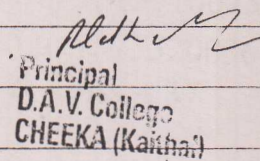 Principal
D.A.V. College
CHEEKA (Kaithal)